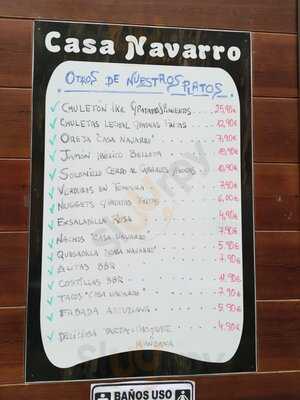 Casa Navarro
OTROS DE NUESTROS PLATOS
CHULETÓN 1KG Y PIMIENTOS
CHULETAS 12,90€
OREJA "CASA NAVARRO" 7,90€
JAMON IBERICO BELLOTA
SOLOMILLO CERDO AL CABRALES
VERDURAS EN TEMPURA 7,90€
NUGGETS 6,00€
ENSALADILLA RUSA 4,90€
NACHOS "CASA NAVARRO" 7,90€
QUESADILLA "CASA NAVARRO" 5,90€
ALITAS BBQ 7,90€
COSTILLAS BBQ 11,90€
TACOS "CASA NAVARRO" 7,90€
FABADA ASTURIANA 5,90€
DELICIOSA TARTA 4,90€
MANZANA
BAÑOS USO